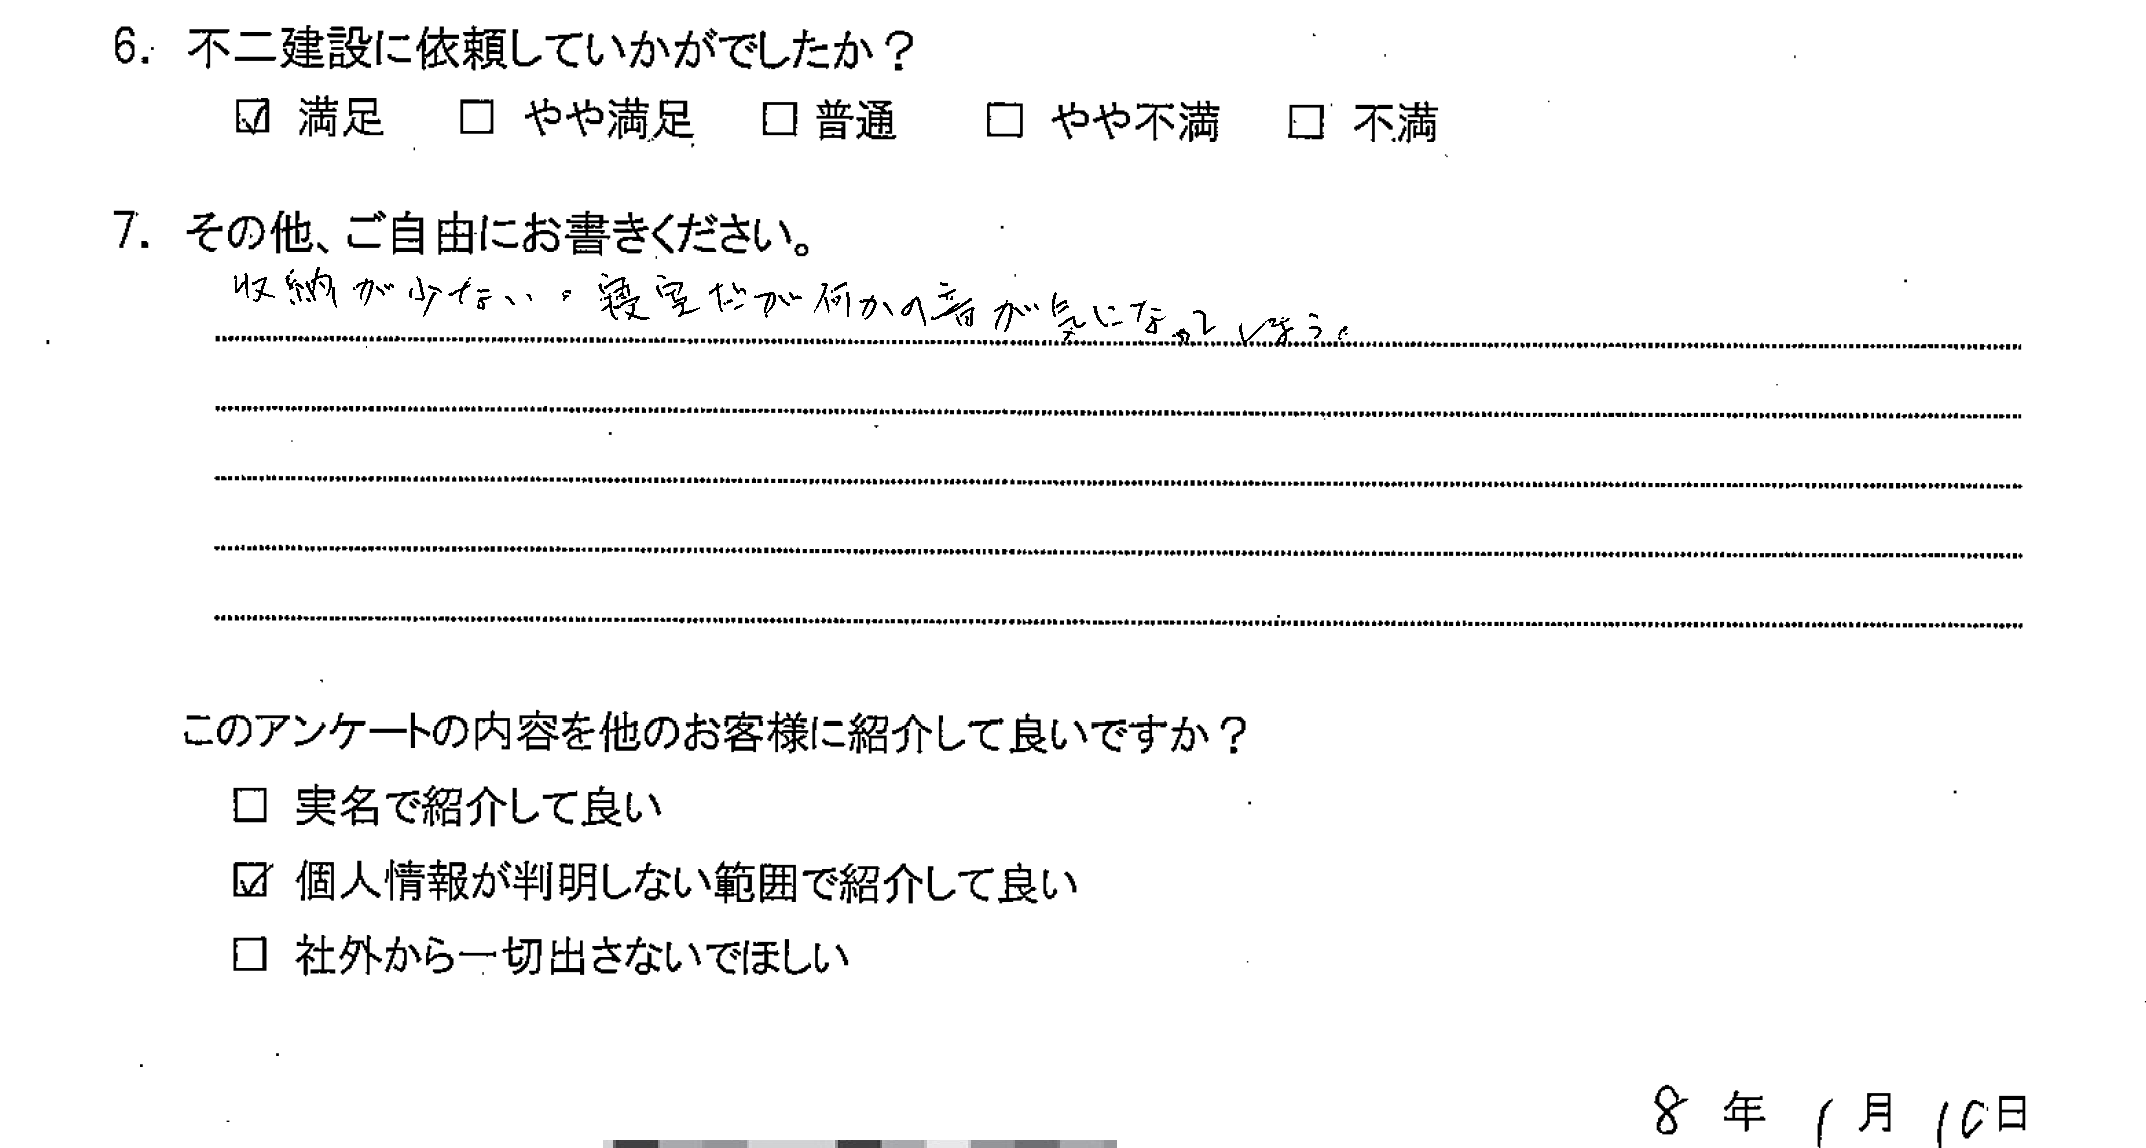 6. 不二建設に依頼していかがでしたか？
☑ 満足 □ やや満足 □ 普通 □ やや不満 □ 不満
7. その他、ご自由にお書きください。
収納が少ない。寝室だが何かの音が気になってしまう。
このアンケートの内容を他のお客様に紹介して良いですか？
□ 実名で紹介して良い
☑ 個人情報が判明しない範囲で紹介して良い
□ 社外から一切出さないでほしい
8 年 1 月 10 日